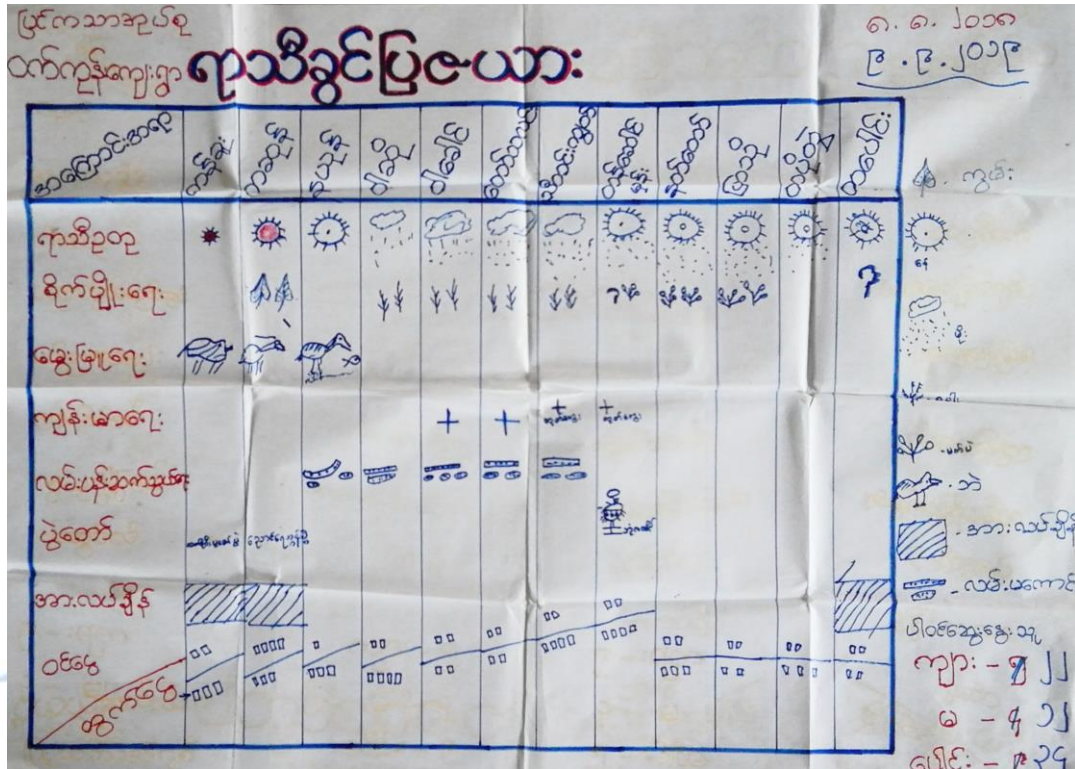 ပြင်ကသာအုယ်စု
ဝက်ကုန်းကျေးရွာ ရာသီခွင်ပြဇယား
၈.၈.၂၀၁၈
၉.၉.၂၀၁၉
အကြောင်းအရာ ကဆုန် နယုန် ဝါဆို ဝါခေါင် တော်သလင်း သီတင်းကျွတ် တန်ဆောင်မုန်း နတ်တော် ပြာသို တပို့တွဲ တပေါင်း
ရာသီဥတု
စိုက်ပျိုးရေး
?
မွေးမြူရေး
ကျန်းမာရေး
လမ်းပန်းဆက်သွယ်ရေး
ပွဲတော်
အားလပ်ချိန်
ဝင်ငွေ
ထွက်ငွေ
- ကွမ်း
နေ
မိုး
- စပါး
- မတ်ပဲ
- ဘဲ
- အားလပ်ချိန်
- လမ်းမကောင်း
ပါဝင်ဆွေးနွေးသူ
ကျား - ၂၂
မ - ၁၂
ပေါင်း - ၃၄